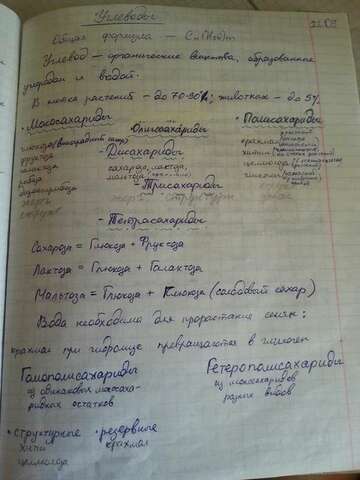 Углеводы
Общая формула — Cn(H2O)m
Углевод — органические вещества, образованные
углеродом и водой.
В клетках растений — до 70-90%; животных — до 5%
• Моносахариды
Олигосахариды
• Полисахариды
глюкоза (виноградный сахар)
фруктоза
галактоза
рибоза
дезоксирибоза
- Дисахариды
сахароза, лактоза,
мальтоза
- Трисахариды
- Тетрасахариды
крахмал
хитин
целлюлоза
гликоген
Сахароза = Глюкоза + Фруктоза
Лактоза = Глюкоза + Галактоза
Мальтоза = Глюкоза + Глюкоза (солодовый сахар)
Вода необходима для прорастания семян:
крахмал при гидролизе превращается в
Гомополисахариды
из одинаковых моносаха-
ридных остатков
Гетерополисахариды
из моносахаридов
разных видов
• структурные
хитин
целлюлоза
• резервные
крахмал